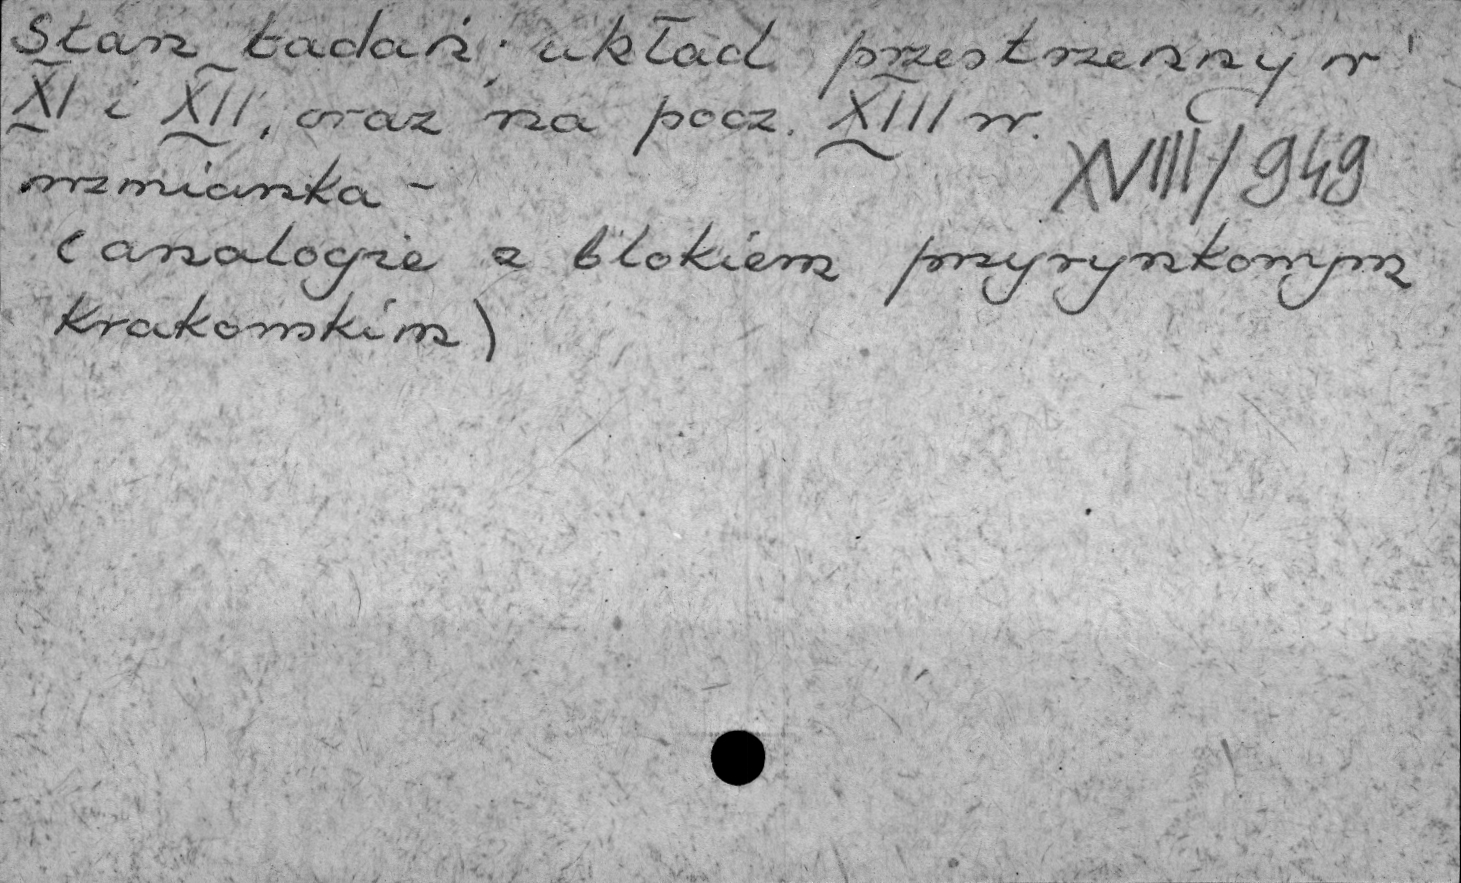 Stan badań; układ przestrzenny w
XI i XII, oraz na pocz. XIII w.
XVIII/949
wzmianka -
(analogie z blokiem przyrynkowym
krakowskim)